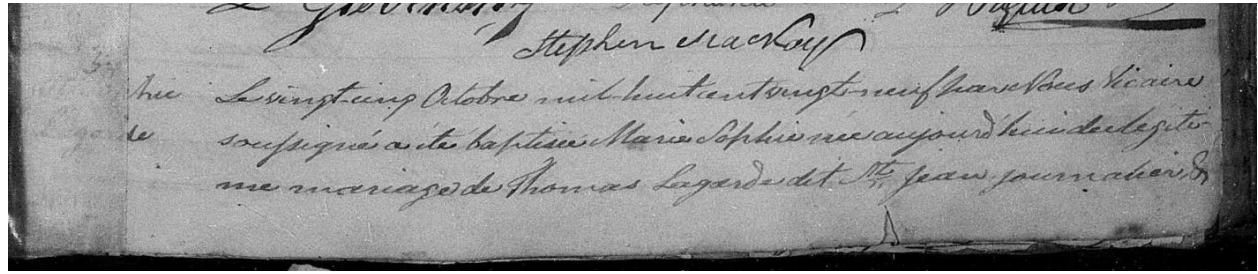 Stephen Mackay
phie Le vingt-cinq Octobre mil-huit cent vingt-neuf par Nous Vicaire
de soussigné a été baptisée Marie Sophie née aujourd'hui du légiti-
me mariage de Thomas Lagarde dit St. Jean journalier &